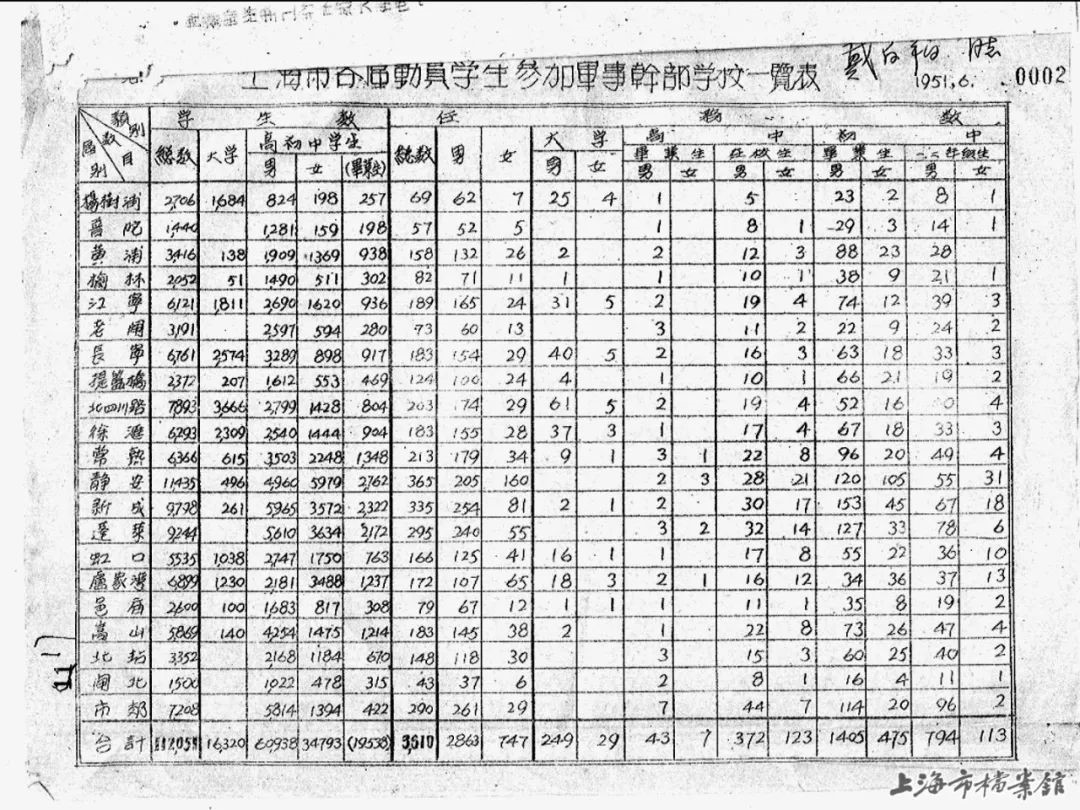 上海市各區動員学生參加軍事幹部学校一覽表
1951.6.
0002
類別 数目 區別 学生数 任務数
總数 大学 高初中学生 總数 男 女 大学 高中 初中
男 女 (畢業生) 男 女 畢業生 在校生 畢業生 一二年級生
男 女 男 女 男 女 男 女
楊樹浦 2,706 1,684 824 198 257 69 62 7 25 4 1 5 23 2 8 1
普陀 1,440 1,281 159 198 57 52 5 1 8 1 29 3 14 1
黄浦 3,416 138 1,909 1369 938 158 132 26 2 2 12 3 88 23 28
榆林 2,052 51 1490 511 302 82 71 11 1 1 10 1 38 9 21 1
江寧 6,121 1,811 2,690 1620 936 189 165 24 31 5 2 19 4 74 12 39 3
老閘 3,191 2,597 594 280 73 60 13 3 11 2 22 9 24 2
長寧 6,761 2,574 3289 898 917 183 154 29 40 5 2 16 3 63 18 33 3
提籃橋 2,372 207 1,612 553 469 124 100 24 4 1 10 1 66 21 19 2
北四川路 7893 3,666 2,799 1428 804 203 74 29 61 5 2 19 4 52 16 4
徐滙 6,293 2,309 2,540 1444 904 183 155 28 37 3 1 17 4 67 18 33 3
常熟 6,366 615 3,503 2248 1,348 213 179 34 9 1 3 1 22 8 96 20 49 4
靜安 11435 496 4,960 5979 2,762 365 205 160 2 3 28 21 120 105 55 31
新成 9,798 261 5,965 3,572 2,322 335 254 81 2 1 2 30 17 153 45 67 18
蓬萊 9,244 5,610 3,634 2,172 295 240 55 3 2 32 14 127 33 78 6
虹口 5,535 1,038 2,747 1750 763 166 125 41 16 1 1 17 8 55 22 36 10
盧家灣 6,899 1,230 2,181 3488 1,237 172 107 65 18 3 2 1 16 12 34 36 37 13
邑廟 2,600 100 1,683 817 308 79 67 12 1 1 1 11 1 35 8 19 2
嵩山 5,869 140 4,254 1475 1,214 183 145 38 2 1 22 8 73 26 47 4
北站 3,352 2,168 1184 670 148 118 30 3 15 3 60 25 40 2
閘北 1,500 1,022 478 315 43 37 6 2 8 1 16 4 11 1
市郊 7,208 5,814 1394 422 290 261 29 7 44 7 114 20 96 2
合計 16,320 60,938 34793 (19538) 3,610 2863 747 249 29 43 7 372 123 1405 475 794 113
上海市檔案館